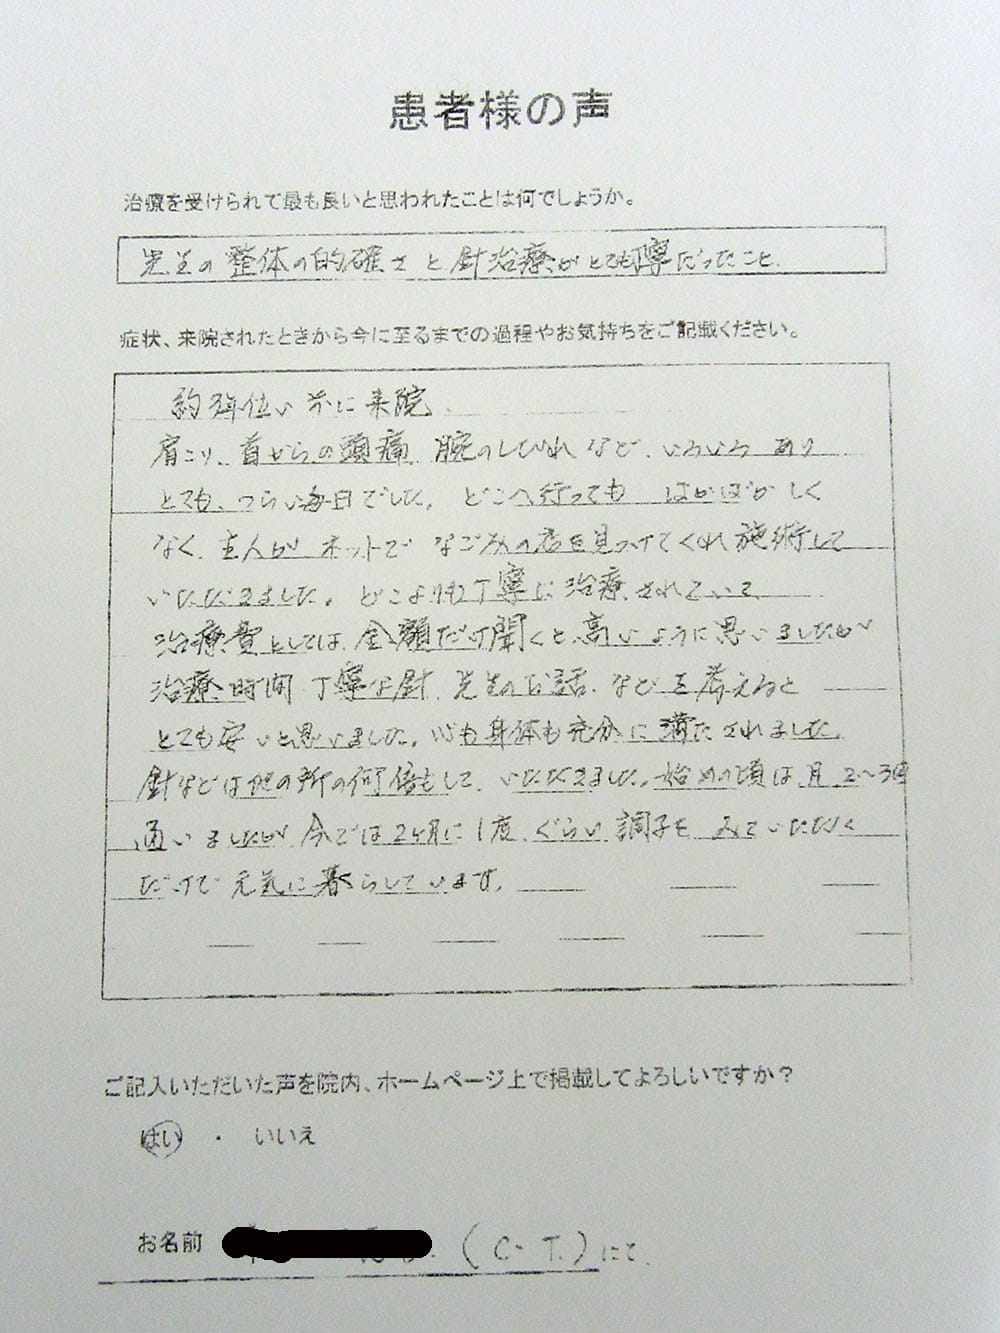 患者様の声
治療を受けられて最も良いと思われたことは何でしょうか。
先生の整体の的確さと針治療がとても寧だったこと.
症状、来院されたときから今に至るまでの過程やお気持ちをご記載ください。
約 年位い前に来院.
肩こり、首からの頭痛 腕のしびれなど、いろいろあり
とても、つらい毎日でした。どこへ行っても はかばかしく
なく、主人がネットで なごみの店を見つけてくれ施術して
いただきました。どこよりも丁寧に治療されていて
治療費としては、金額だけ聞くと高いように思いましたが
治療時間 丁寧な針、先生のお話、などを考えると
とても安いと思いました。心も身体も充分に満たされました。
針などは他の所の何倍もして、いただきました。始めの頃は月2〜3回
通いましたが今では2ヶ月に1度、ぐらい調子を みていただく
だけで元気に暮らしています。
ご記入いただいた声を院内、ホームページ上で掲載してよろしいですか？
はい ・ いいえ
お名前 (C・T.)にて.